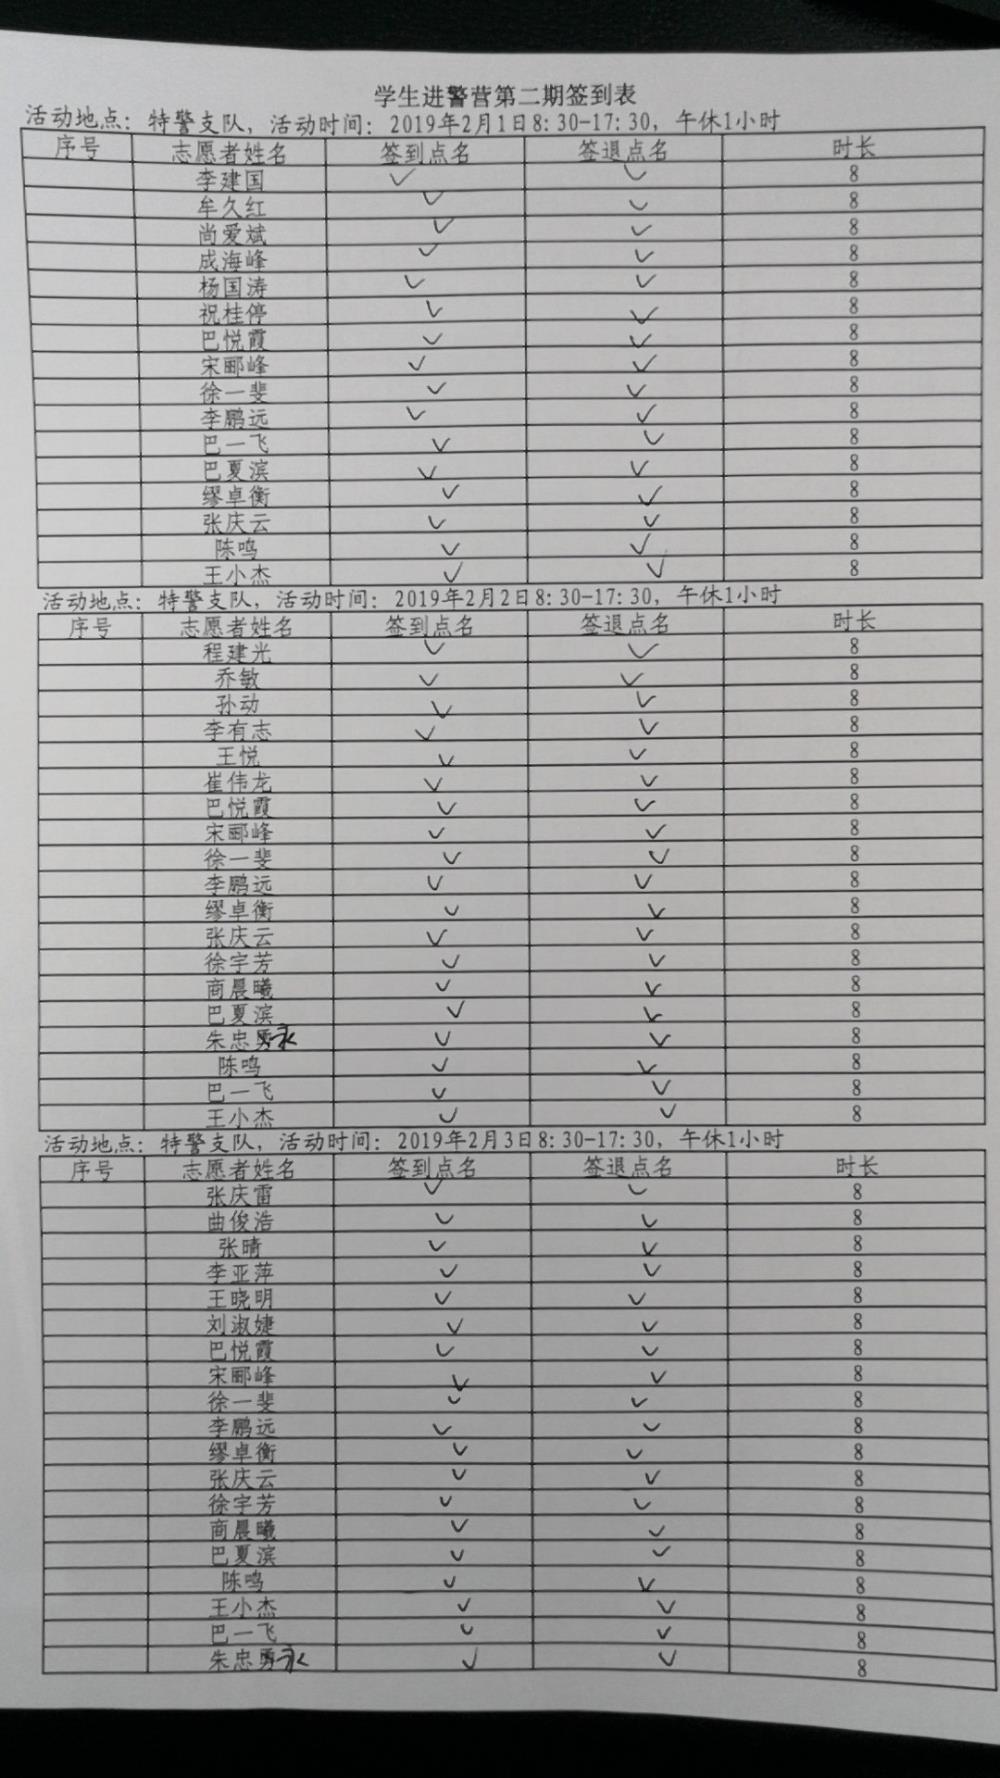 学生进警营第二期签到表
活动地点：特警支队，活动时间：2019年2月1日8:30-17:30，午休1小时
序号 志愿者姓名 签到点名 签退点名 时长
李建国 ✓ ✓ 8
牟久红 ✓ ✓ 8
尚爱斌 ✓ ✓ 8
成海峰 ✓ ✓ 8
杨国涛 ✓ ✓ 8
祝桂停 ✓ ✓ 8
巴悦霞 ✓ ✓ 8
宋郦峰 ✓ ✓ 8
徐一斐 ✓ ✓ 8
李鹏远 ✓ ✓ 8
巴一飞 ✓ ✓ 8
巴夏滨 ✓ ✓ 8
缪卓衡 ✓ ✓ 8
张庆云 ✓ ✓ 8
陈鸣 ✓ ✓ 8
王小杰 ✓ ✓ 8
活动地点：特警支队，活动时间：2019年2月2日8:30-17:30，午休1小时
序号 志愿者姓名 签到点名 签退点名 时长
程建光 ✓ ✓ 8
乔敏 ✓ ✓ 8
孙动 ✓ ✓ 8
李有志 ✓ ✓ 8
王悦 ✓ ✓ 8
崔伟龙 ✓ ✓ 8
巴悦霞 ✓ ✓ 8
宋郦峰 ✓ ✓ 8
徐一斐 ✓ ✓ 8
李鹏远 ✓ ✓ 8
缪卓衡 ✓ ✓ 8
张庆云 ✓ ✓ 8
徐宇芳 ✓ ✓ 8
商晨曦 ✓ ✓ 8
巴夏滨 ✓ ✓ 8
朱忠勇永 ✓ ✓ 8
陈鸣 ✓ ✓ 8
巴一飞 ✓ ✓ 8
王小杰 ✓ ✓ 8
活动地点：特警支队，活动时间：2019年2月3日8:30-17:30，午休1小时
序号 志愿者姓名 签到点名 签退点名 时长
张庆雷 ✓ ✓ 8
曲俊浩 ✓ ✓ 8
张晴 ✓ ✓ 8
李亚萍 ✓ ✓ 8
王晓明 ✓ ✓ 8
刘淑婕 ✓ ✓ 8
巴悦霞 ✓ ✓ 8
宋郦峰 ✓ ✓ 8
徐一斐 ✓ ✓ 8
李鹏远 ✓ ✓ 8
缪卓衡 ✓ ✓ 8
张庆云 ✓ ✓ 8
徐宇芳 ✓ ✓ 8
商晨曦 ✓ ✓ 8
巴夏滨 ✓ ✓ 8
陈鸣 ✓ ✓ 8
王小杰 ✓ ✓ 8
巴一飞 ✓ ✓ 8
朱忠勇永 ✓ ✓ 8